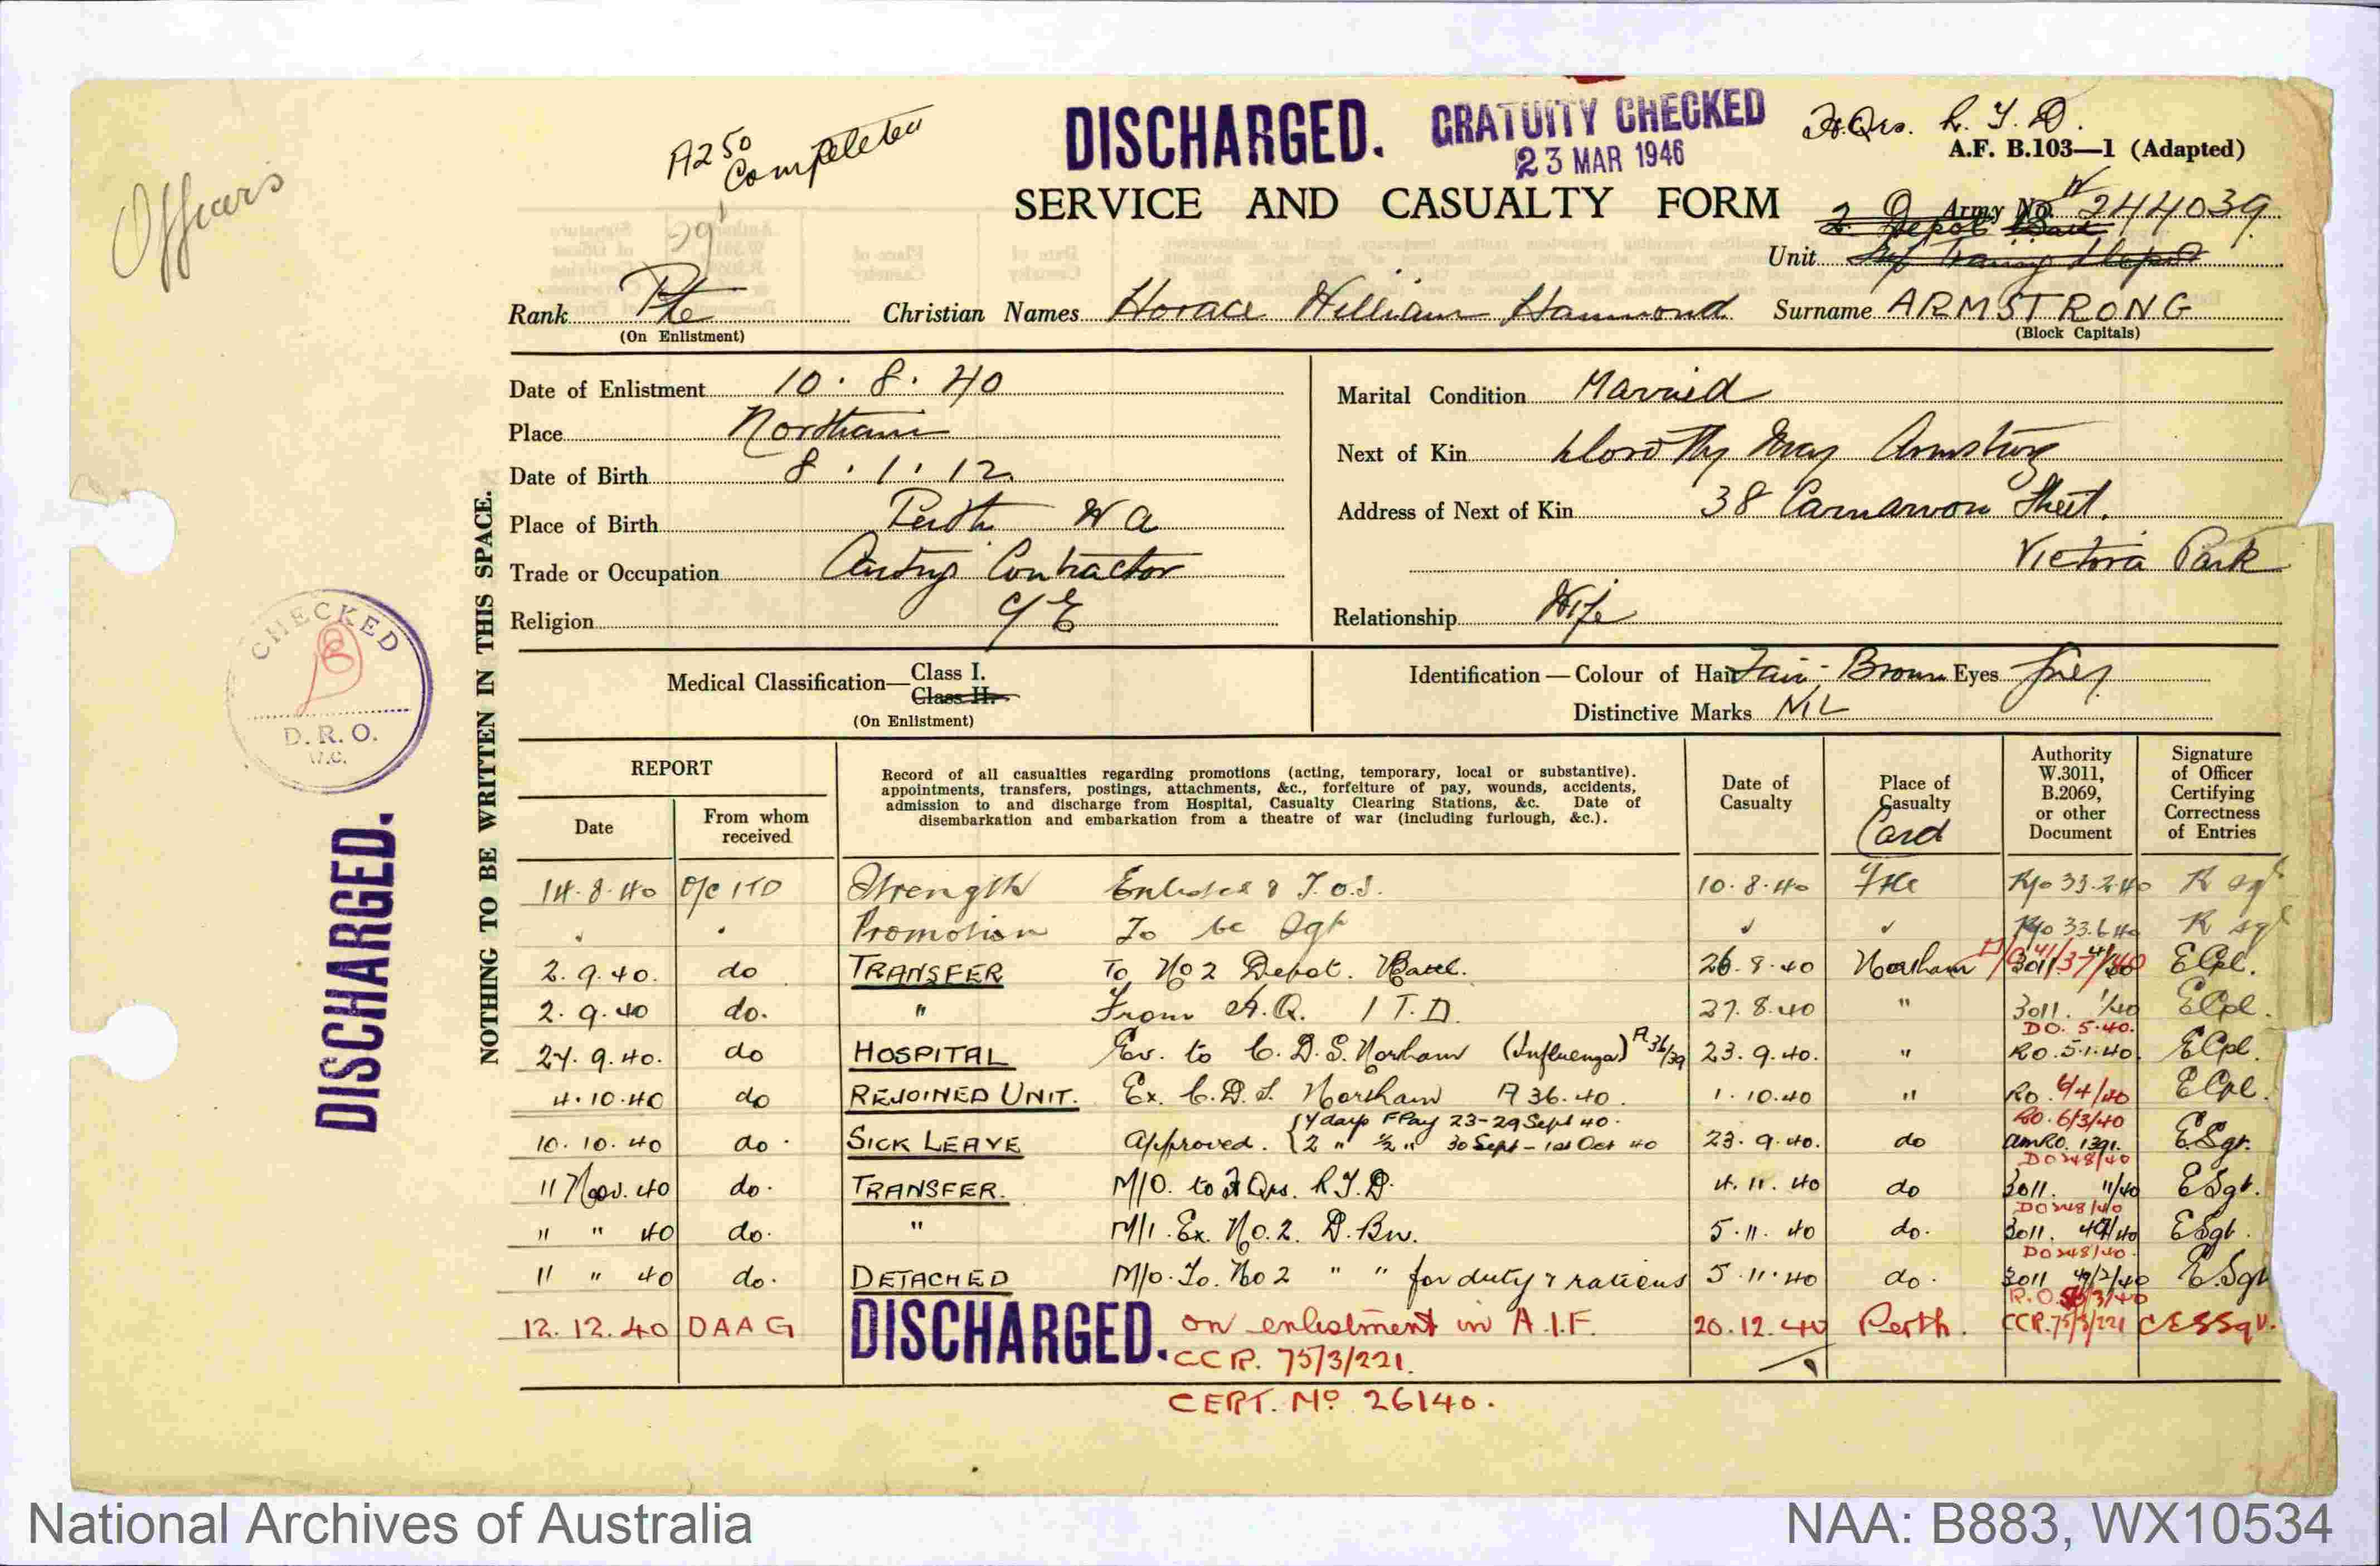 Officers
A250
Completed
DISCHARGED.
GRATUITY CHECKED
23 MAR 1946
H.Qrs. R. T. D.
A.F. B.103—1 (Adapted)
SERVICE AND CASUALTY FORM
Army No. W 244039
2 Depot
Unit Training Depot
Rank Pte
(On Enlistment)
Christian Names Horace William Hammond
Surname ARMSTRONG
(Block Capitals)
Date of Enlistment 10.8.40
Place Northam
Date of Birth 8.1.12
Place of Birth Perth WA
Trade or Occupation Carting Contractor
Religion C/E
Marital Condition Married
Next of Kin Dorothy May Armstrong
Address of Next of Kin 38 Carnarvon Street.
Victoria Park
Relationship Wife
Medical Classification— Class I.
Class II.
(On Enlistment)
Identification — Colour of Hair Fair - Brown Eyes Grey
Distinctive Marks NIL
NOTHING TO BE WRITTEN IN THIS SPACE.
CHECKED
D. R. O.
DISCHARGED.
REPORT
Date
From whom received
Record of all casualties regarding promotions (acting, temporary, local or substantive).
appointments, transfers, postings, attachments, &c., forfeiture of pay, wounds, accidents,
admission to and discharge from Hospital, Casualty Clearing Stations, &c. Date of
disembarkation and embarkation from a theatre of war (including furlough, &c.).
Date of Casualty
Place of Casualty
Card
Authority W.3011, B.2069, or other Document
Signature of Officer Certifying Correctness of Entries
14.8.40 O/C ITD Strength Enlisted & T.O.S. 10.8.40
Promotion To be Sgt
2.9.40. do TRANSFER To No 2 Depot. Northam E Cpl.
2.9.40 do. " From H.Q. I T.D. 27.8.40 " 3011. 1/40 E Cpl.
DO. 5.40.
24.9.40. do HOSPITAL Ev. to C.D.S. Northam (Influenza) A36/39 23.9.40. " E Cpl.
4.10.40 do REJOINED UNIT. Ex. C.D.S. Northam A36.40. 1.10.40 " RO. 6/4/40 E Cpl.
RO. 6/3/40
10.10.40 do. SICK LEAVE Approved. 7 days F Pay 23-29 Sept 40.
2 " ½ " 30 Sept - 1st Oct 40 23.9.40. do AMRO. 1391. E Sgt.
DO 248/40
11 Nov. 40 do. TRANSFER. M/O. to H Qrs. R.T.D. 4.11.40 do 3011. 11/40 E Sgt.
DO 248/40
" " 40 do. " M/I. Ex. No. 2. D. Bn. 5.11.40 do. 3011. E Sgt.
DO 248/40.
11 " 40 do. DETACHED M/O. To. No 2 " " for duty & rations 5.11.40 do. 3011 49/2/40 E.Sgt
12.12.40 DAAG DISCHARGED. on enlistment in A.I.F. 20.12.40 Perth. CCR.75/3/221
CCR. 75/3/221.
CERT. No 26140.
National Archives of Australia
NAA: B883, WX10534